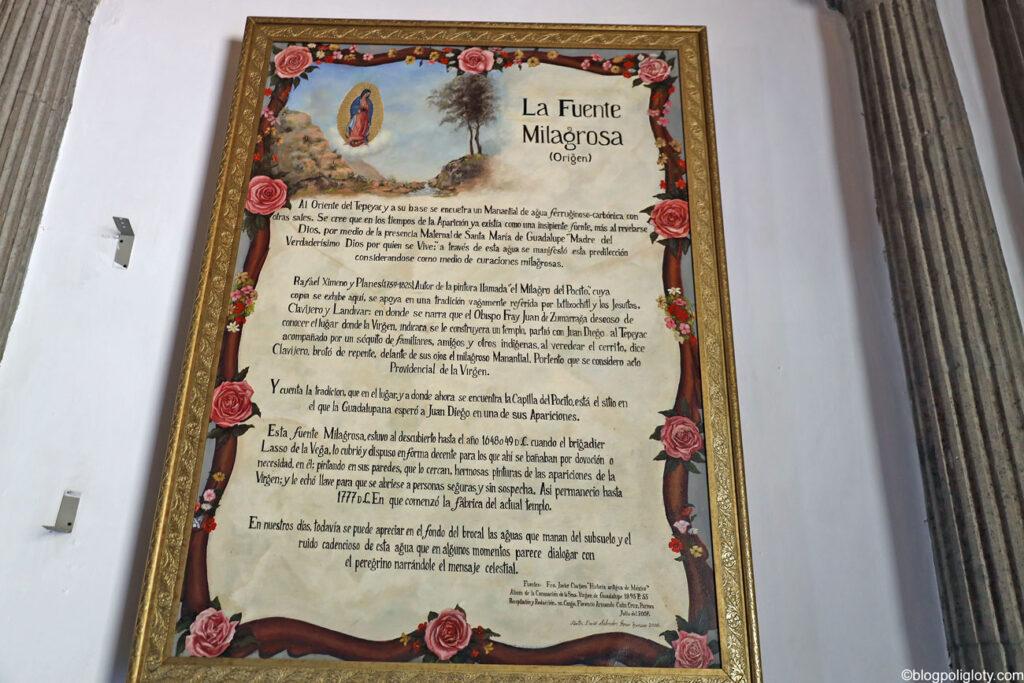 La Fuente
Milagrosa
(Origen)
Al Oriente del Tepeyac y a su base se encuetra un Manantial de agua ferruginoso-carbónica, con
otras sales. Se cree que en los tiempos de la Aparición ya existía como una insipiente fuente, más al revelarse
Dios, por medio de la presencia Maternal de Santa María de Guadalupe "Madre del
Verdaderísimo Dios por quien se Vive;" a través de esta agua se manifestó esta predilección
considerandose como medio de curaciones milagrosas.
Rafael Ximeno y Planes(1759-1825),Autor de la pintura llamada "el Milagro del Pocito", cuya
copia se exhibe aquí, se apoya en una tradición vagamente referida por Ixtlixochitl y los Jesuitas.
Clavijero y Landivar: en donde se narra que el Obispo Fray Juan de Zumarraga deseoso de
conocer el lugar donde la Virgen, indicara, se le construyera un templo, partió con Juan Diego al Tepeyac
acompañado por un séquito de familiares, amigos y otros indigenas, al veredear el cerrito, dice
Clavijero, brotó de repente, delante de sus ojos el milagroso Manantial. Portento que se considero acto
Providencial de la Virgen.
Y cuenta la tradicion, que en el lugar, y a donde ahora se encuentra la Capilla del Pocito, está el sitio en
el que la Guadalupana esperó a Juan Diego en una de sus Apariciones.
Esta fuente Milagrosa, estuvo al descubierto hasta el año 1648 o 49 D.C. cuando el brigadier
Lasso de la Vega, lo cubrió y dispuso en forma decente para los que ahí se bañaban por devoción o
necesidad, en él; pintando en sus paredes, que lo cercan, hermosas pinturas de las apariciones de la
Virgen; y le echó llave para que se abriese a personas seguras y sin sospecha. Asi permanecio hasta
1777 D.C. En que comenzó la fábrica del actual templo.
En nuestros dias, todavía se puede apreciar en el fondo del brocal las aguas que manan del subsuelo y el
ruido cadencioso de esta agua que en algunos momentos parece dialogar con
el peregrino narrándole el mensaje celestial.
Fuentes: Fco. Javier Clavijero "Historia antigua de México"
Album de la Coronación de la Sma. Virgen de Guadalupe 1895 P. 55
Recopilación y Redacción. m. Cango. Florencio Armando Colin Cruz, Párroco
Julio del 2006.
©blogpoligloty.com